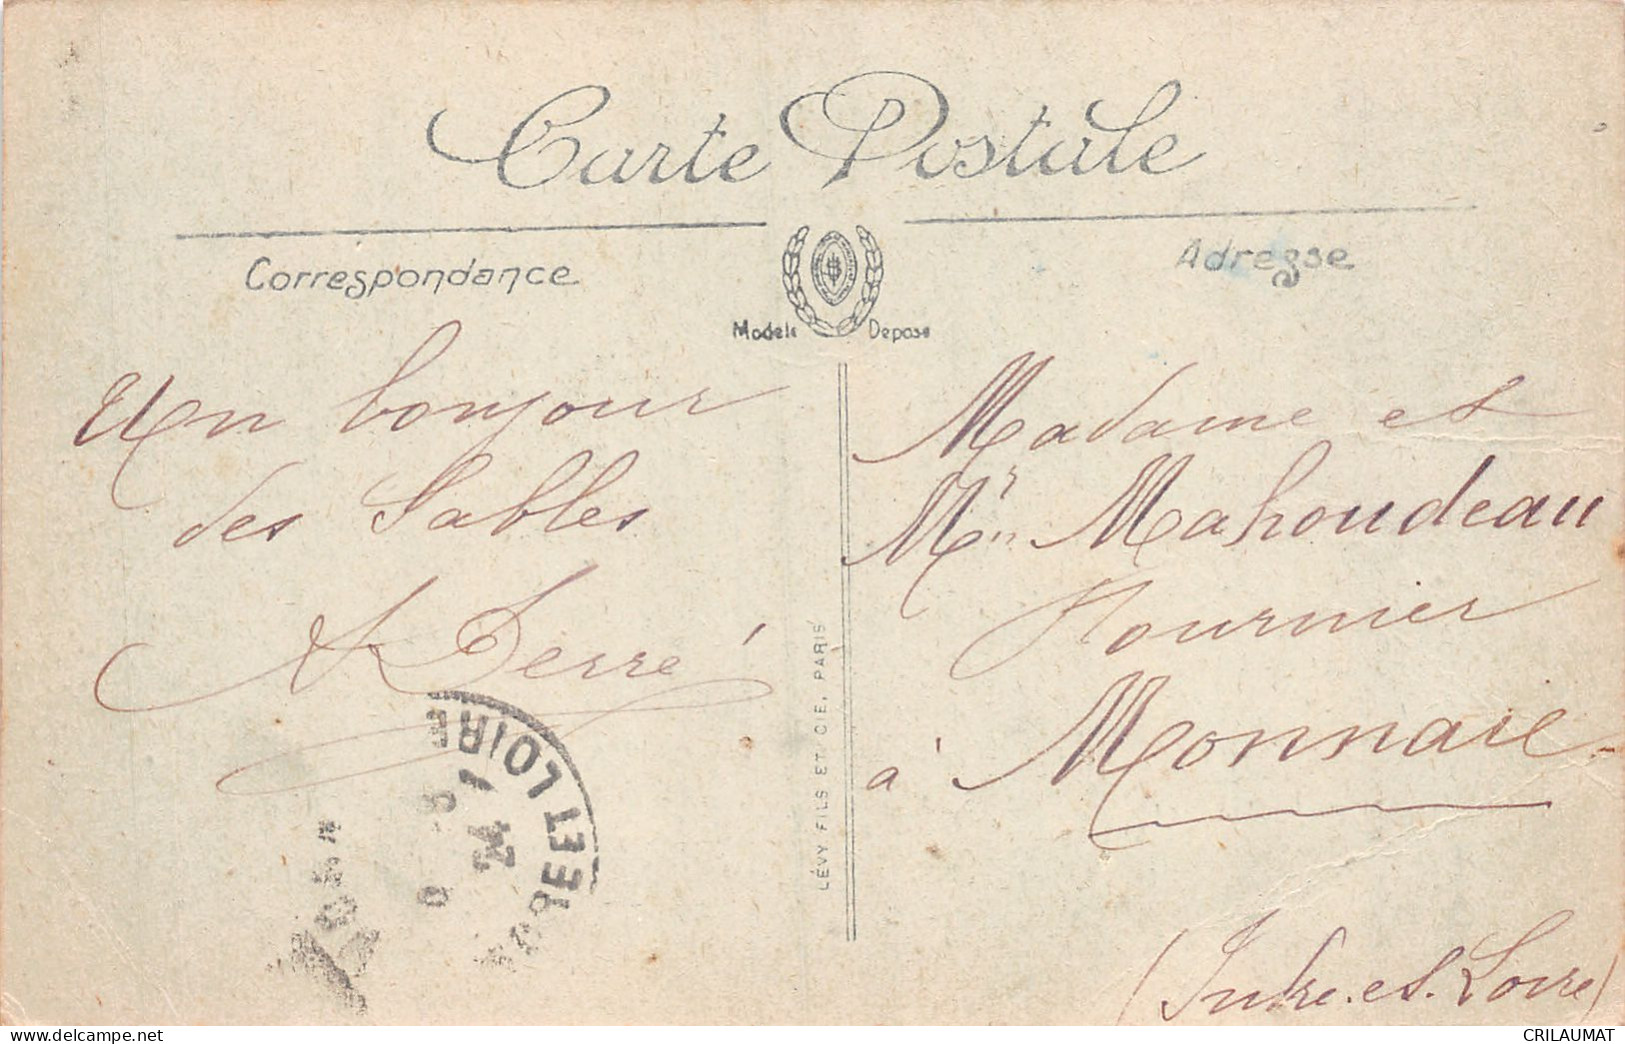 Carte Postale
Correspondance
Adresse
Modele Deposé
Un bonjour
des Sables
A Derré
Madame et
Mr Mahoudeau
Fournier
à Monnaie
(Indre. et. Loire)
LÉVY FILS ET CIE, PARIS
ET LOIRE
CRILAUMAT